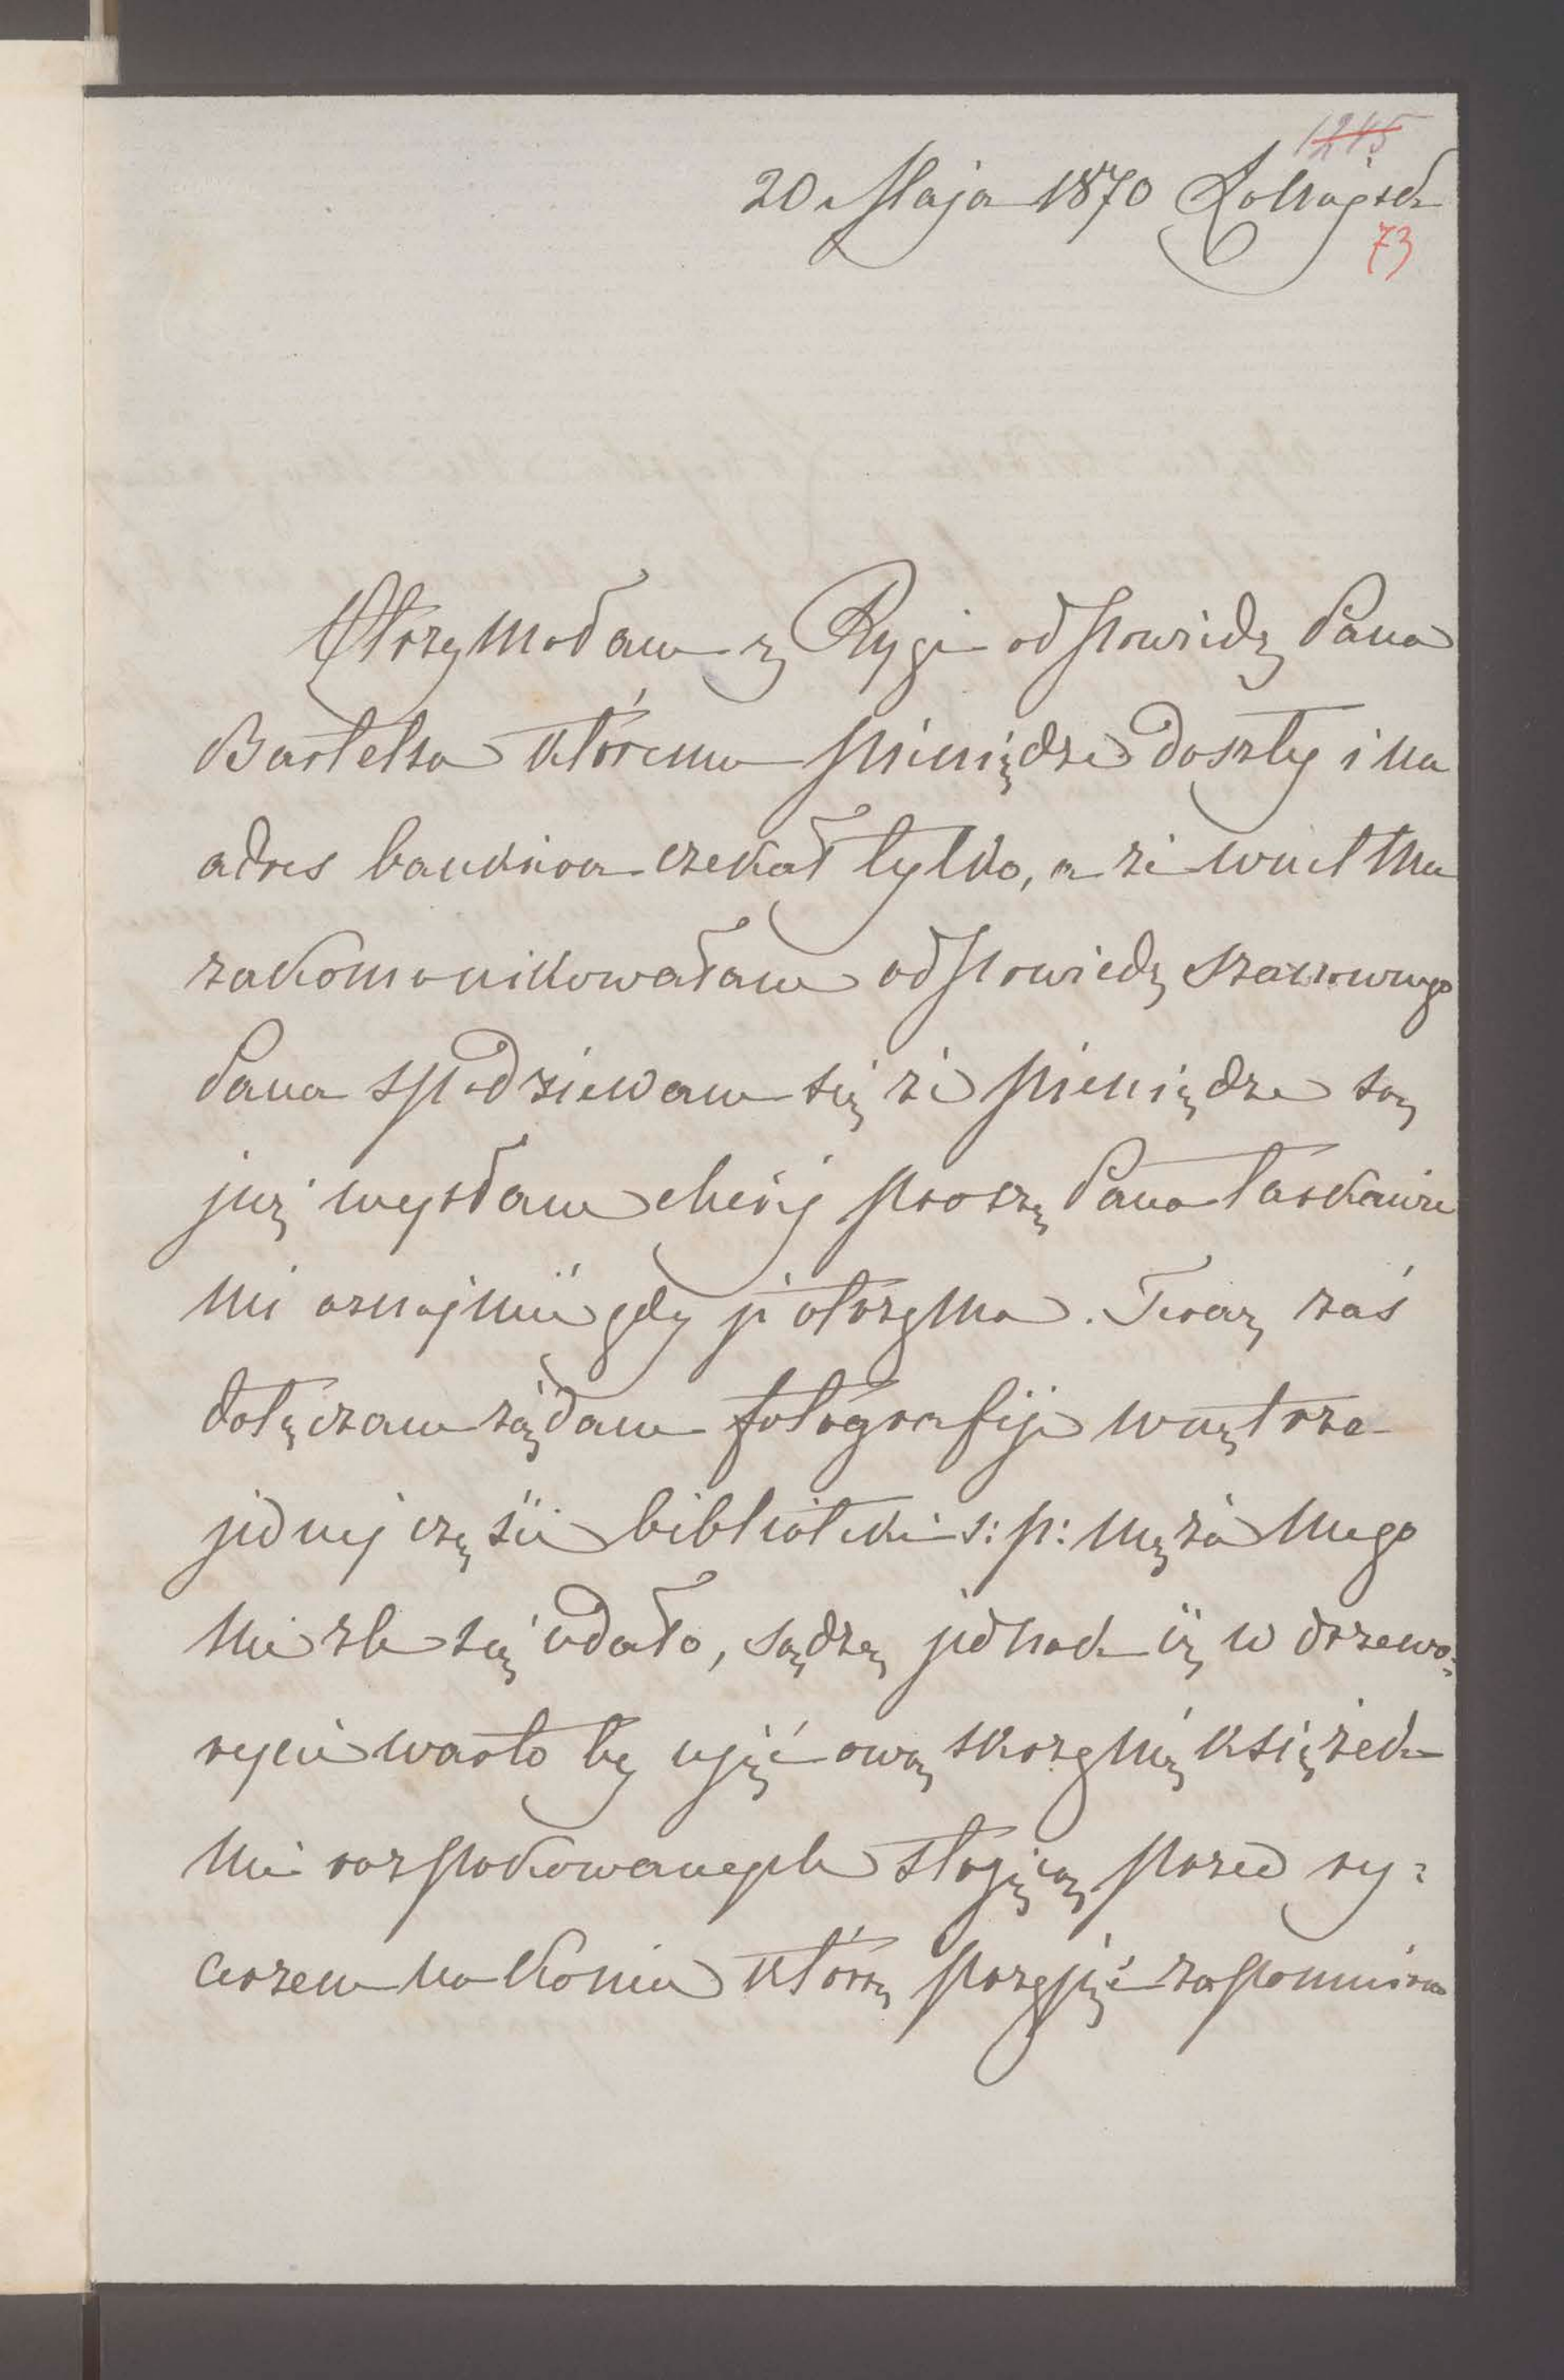 1245
20 Maja 1870 Łohojsk
73
Otrzymałam z Rygi odpowiedz Pana
Bartelsa któremu pieniądze doszły i na
adres bankiera czekał tylko, a że wnet mu
zakomonikowałam odpowiedz szanownego
Pana spodziewam się że pieniądze są
już wysłane chciej proszę Pana łaskawie
mi oznajmić gdy je otrzyma. Teraz zaś
dołączam żądane fotografije wnętrze
jednej części biblioteki ś: p: męża mego
nie źle się udało, sądzę jednak iż w drzewo=
rycie warto by ująć ową skrzynię książek
nie rozpakowanych stojącą przed ry=
cerzem na koniu którą przyjąć zapomniano